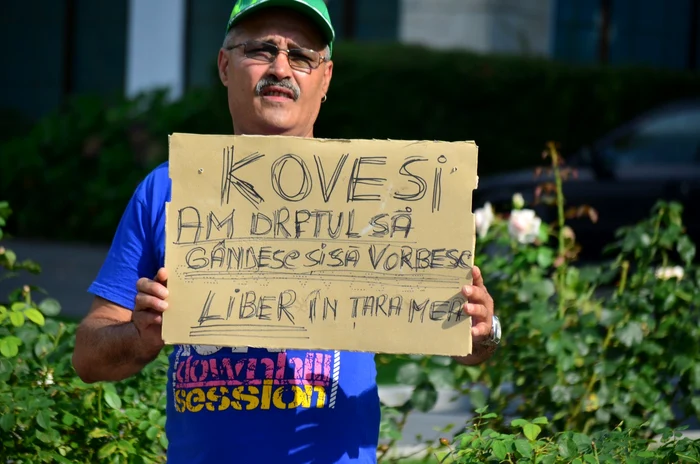 KOVESi
AM DRPTUL SĂ
GÂNDESC SI SĂ VORBESC
LiBER ÎN ȚARA MEA
downhill
session